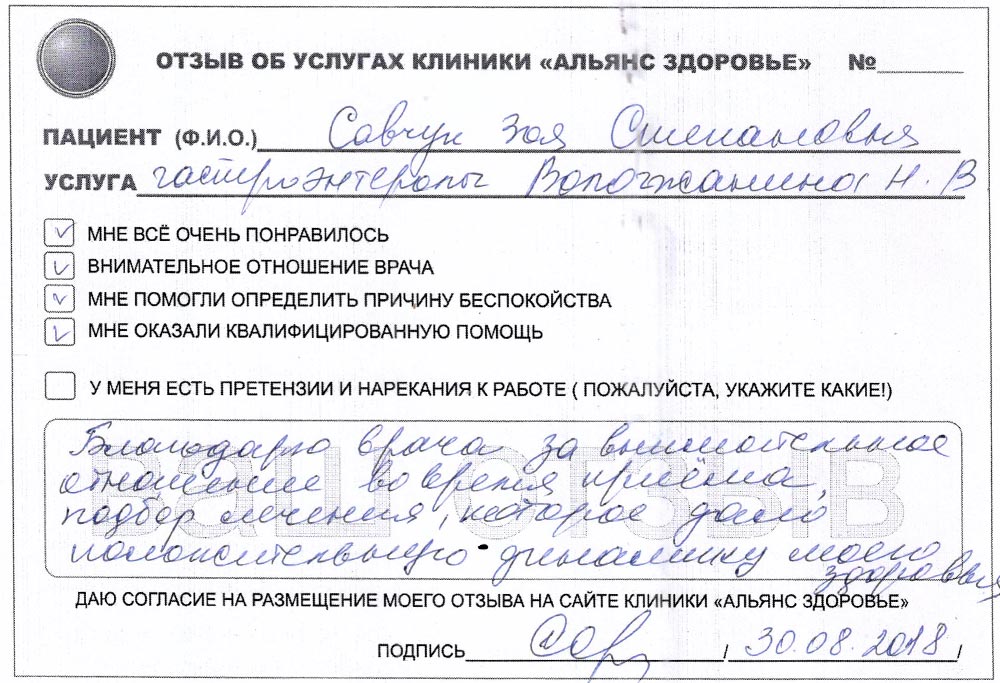 ОТЗЫВ ОБ УСЛУГАХ КЛИНИКИ «АЛЬЯНС ЗДОРОВЬЕ» №
ПАЦИЕНТ (Ф.И.О.) Савчук Зоя Степановна
УСЛУГА гастроэнтеролог Вологжанина Н. В
МНЕ ВСЁ ОЧЕНЬ ПОНРАВИЛОСЬ
ВНИМАТЕЛЬНОЕ ОТНОШЕНИЕ ВРАЧА
МНЕ ПОМОГЛИ ОПРЕДЕЛИТЬ ПРИЧИНУ БЕСПОКОЙСТВА
МНЕ ОКАЗАЛИ КВАЛИФИЦИРОВАННУЮ ПОМОЩЬ
У МЕНЯ ЕСТЬ ПРЕТЕНЗИИ И НАРЕКАНИЯ К РАБОТЕ ( ПОЖАЛУЙСТА, УКАЖИТЕ КАКИЕ!)
ВАШ ОТЗЫВ
Благодарю врача за внимательное
отношение во время приёма,
подбор лечения, которое дало
положительную динамику моего
здоровья
ДАЮ СОГЛАСИЕ НА РАЗМЕЩЕНИЕ МОЕГО ОТЗЫВА НА САЙТЕ КЛИНИКИ «АЛЬЯНС ЗДОРОВЬЕ»
ПОДПИСЬ / 30.08.2018 /